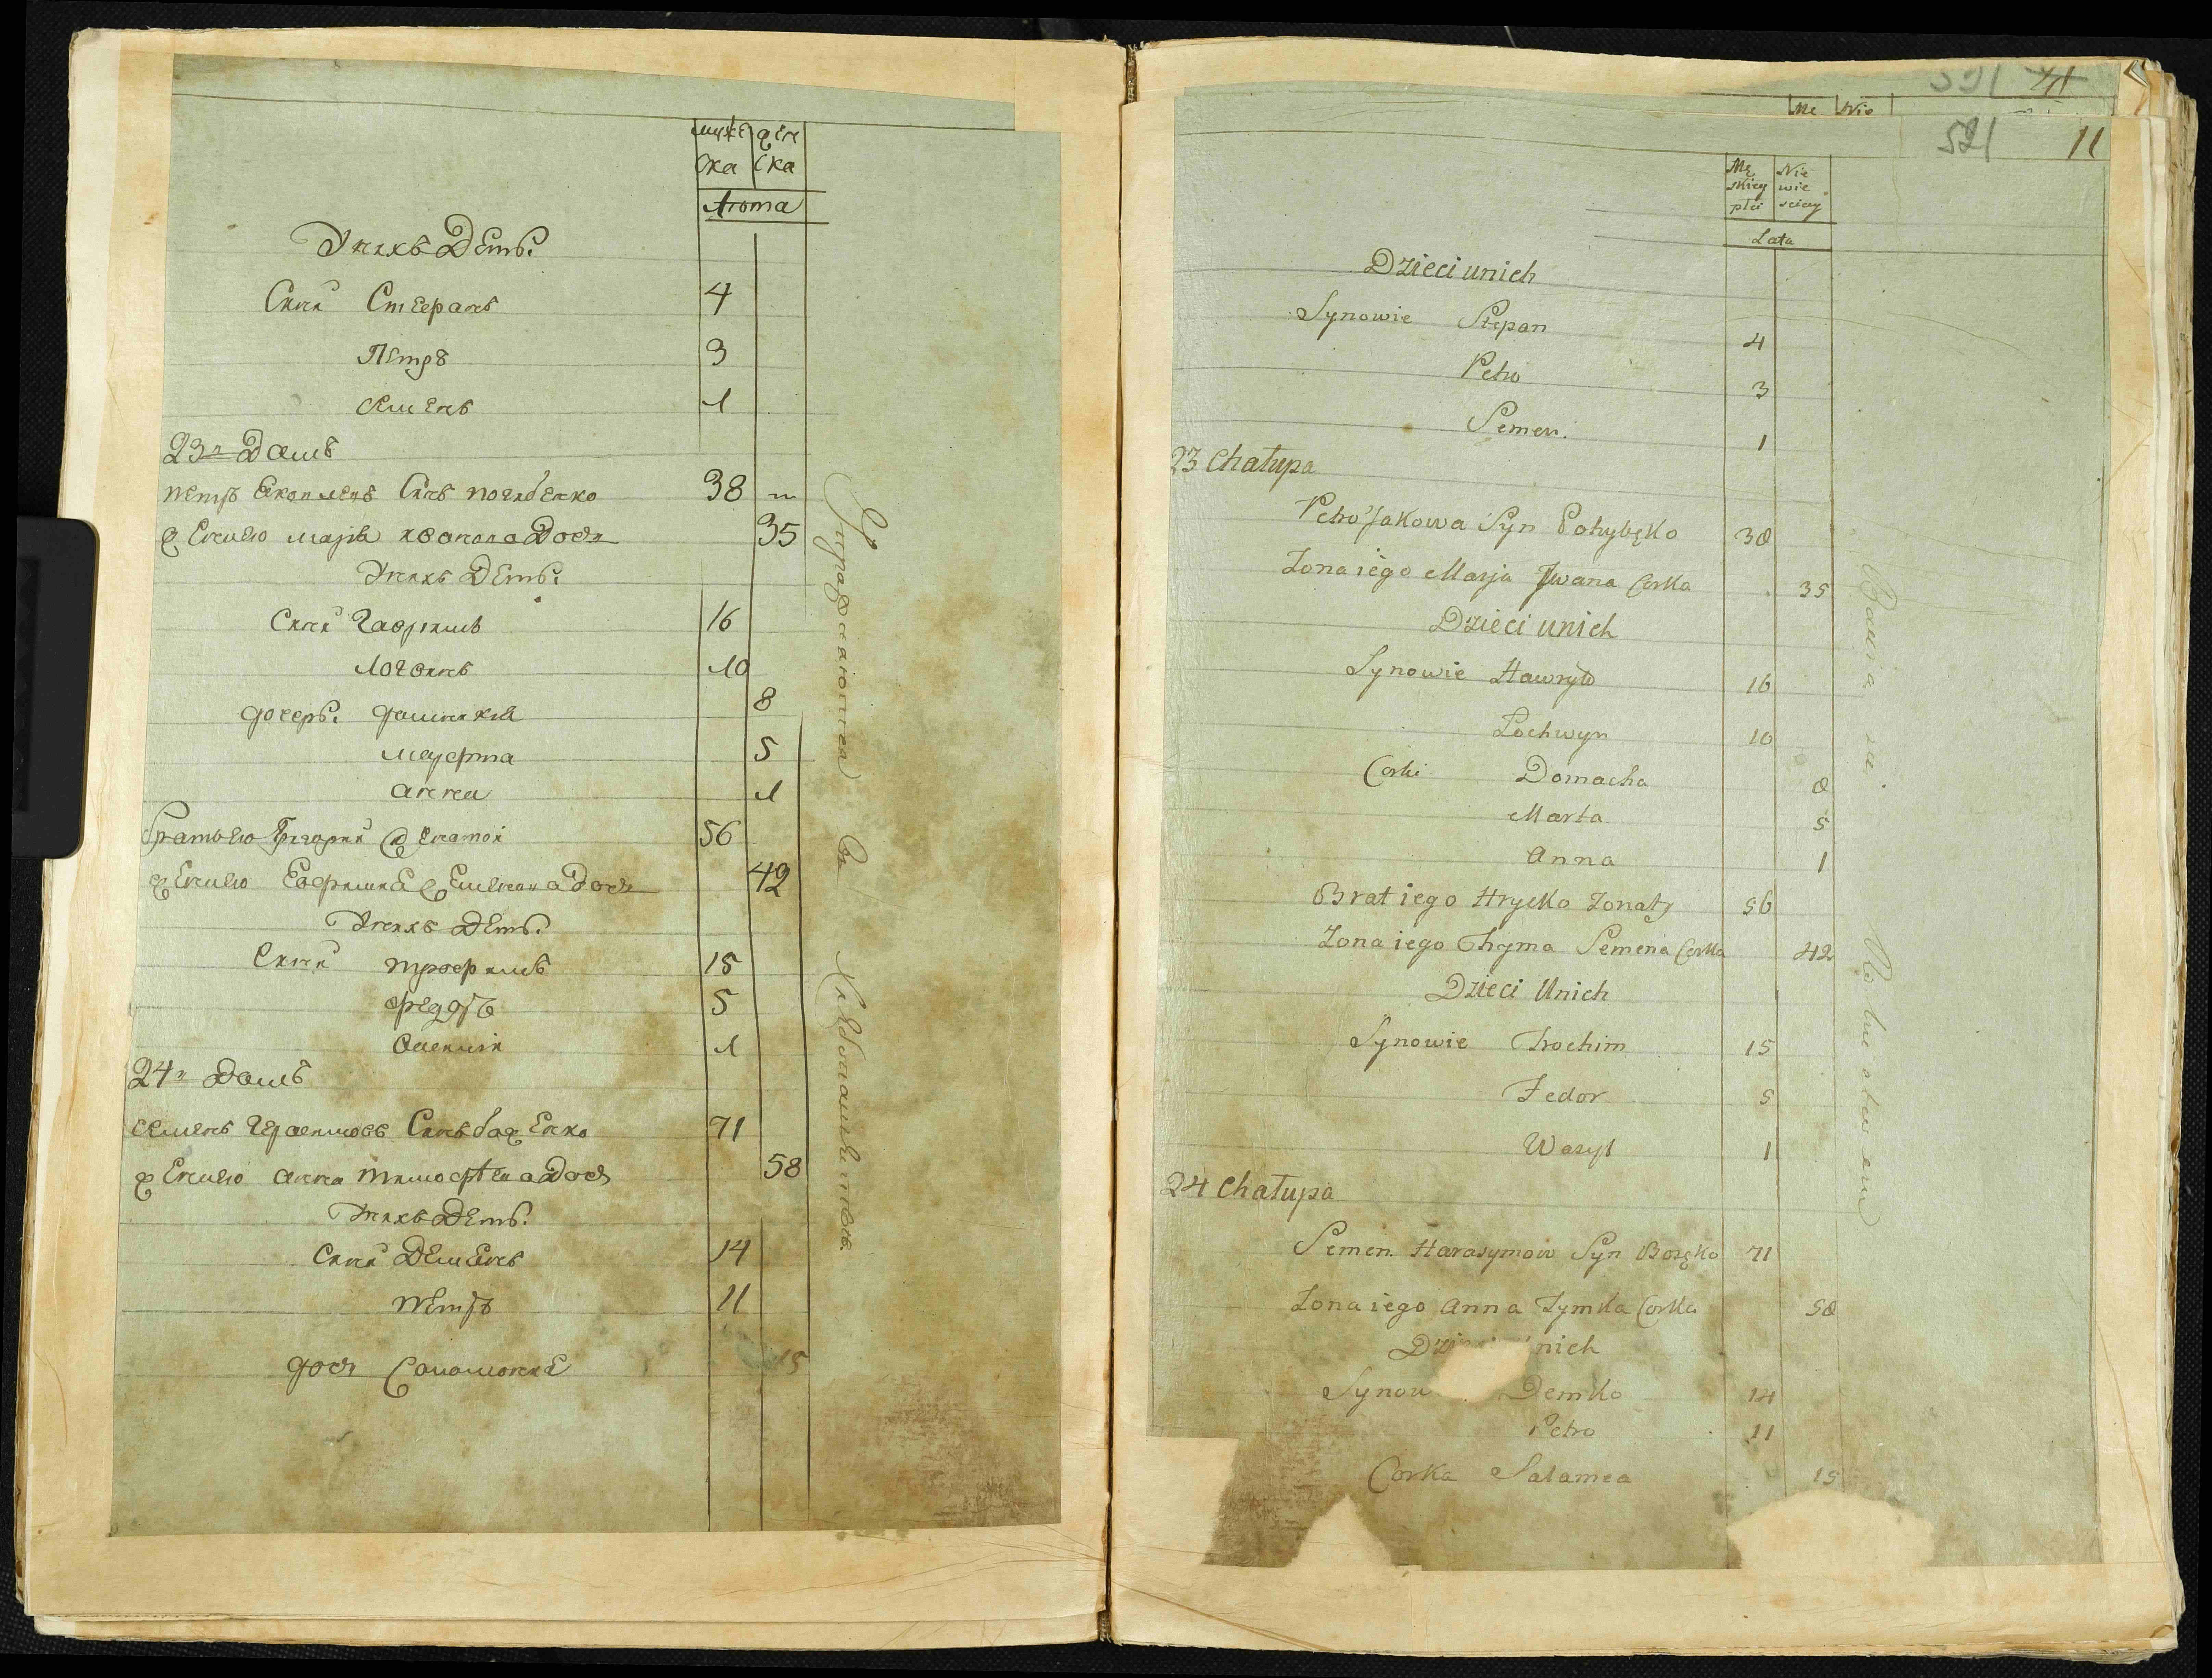 мужес ка
женс ка
Лѣта
Унихъ Дети:
Сини Степанъ 4
Петръ 3
Семенъ 1
23й Домъ
петръ Якомовъ Синъ погибенко 38
жена его марія ивана Дочь 35
Унихъ Дети:
Сини Гаврило 16
Логвинъ 10
дочери: домникія 8
марфта 5
анна 1
братъ его Григорій женатой 56
жена его Ефимія Семена Дочь 42
Унихъ Дети:
Сини трофимъ 15
федоръ 5
Василій 1
24й Домъ
семенъ Герасимовъ Синъ баженко 71
жена его анна тимофея Дочь 58
Унихъ Дети:
Сини Деменъ 14
петръ 11
дочь Саломонія 15
591 41
Mę Nie
521 11
Mę skiey płci
Nie wie sciey
Lata
Dzieci unich
Synowie Stepan 4
Petro 3
Semen. 1
23 Chałupa
Petro Jakowa Syn Pohybęko 38
Zona iego Marja Jwana Corka 35
Dzieci unich
Synowie Hawryło 16
Lochwyn 10
Corki Domacha 8
Marta 5
Anna 1
Brat iego Hrycko Zonaty 56
Zona iego Chyma Semena Corka 42
Dzieci Unich
Synowie Trochim 15
Fedor 5
Wasyl 1
24 Chałupa
Semen Harasymow Syn Bozęko 71
Zona iego Anna Tymka Corka 58
Dzieci unich
Synow Demko 14
Petro 11
Corka Salamea 15